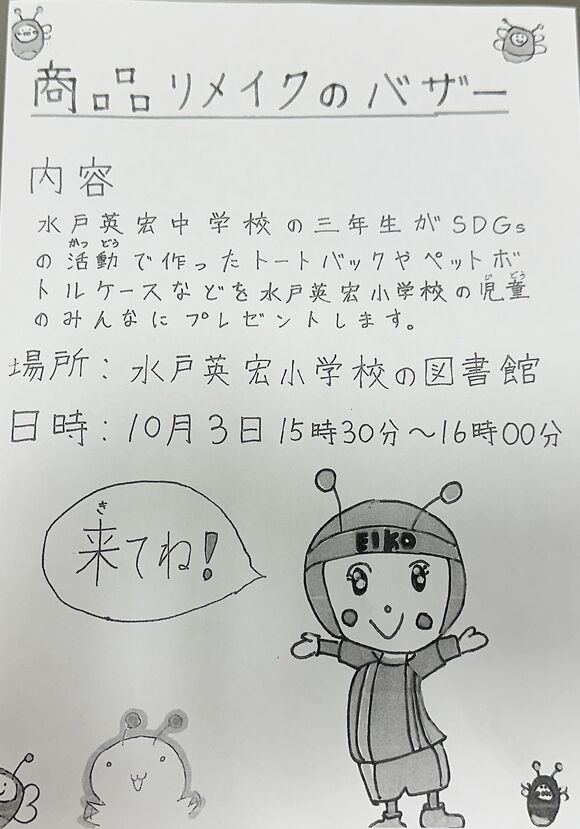 商品リメイクのバザー
内容
水戸英宏中学校の三年生がSDGs
かつ どう
の活動で作ったトートバックやペットボ
トルケースなどを水戸英宏小学校の児童
じ どう
のみんなにプレゼントします。
場所：水戸英宏小学校の図書館
日時：10月3日 15時30分～16時00分
き
来てね！
EIKO